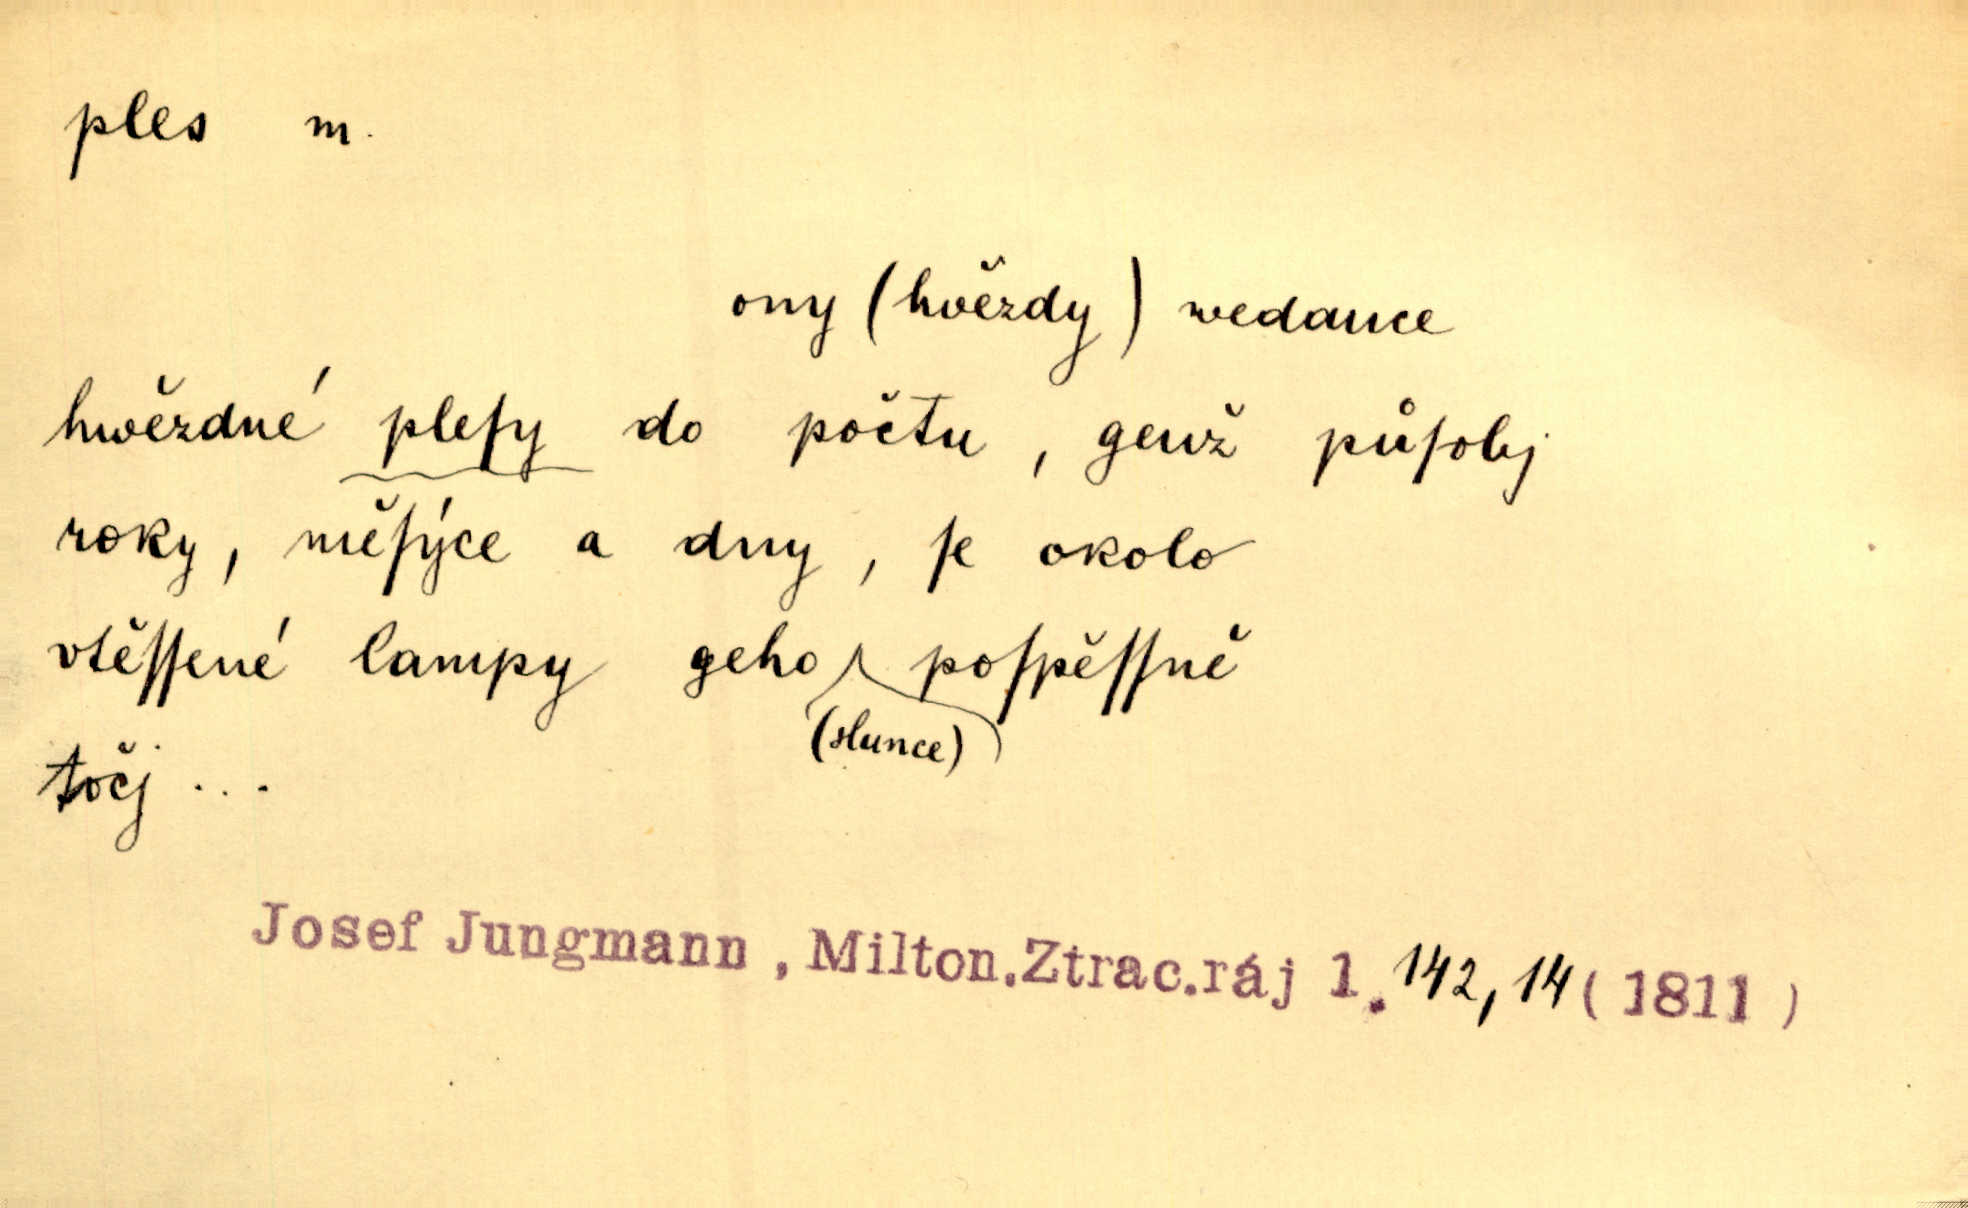 ples m.
ony (hvězdy) wedauce
hwězdné pleſy do počtu, genž půſobj
roky, měſýce a dny, ſe okolo
vtěſſené lampy geho (slunce) poſpěſſně
točj ...
Josef Jungmann, Milton.Ztrac.ráj 1. 142, 14 (1811)